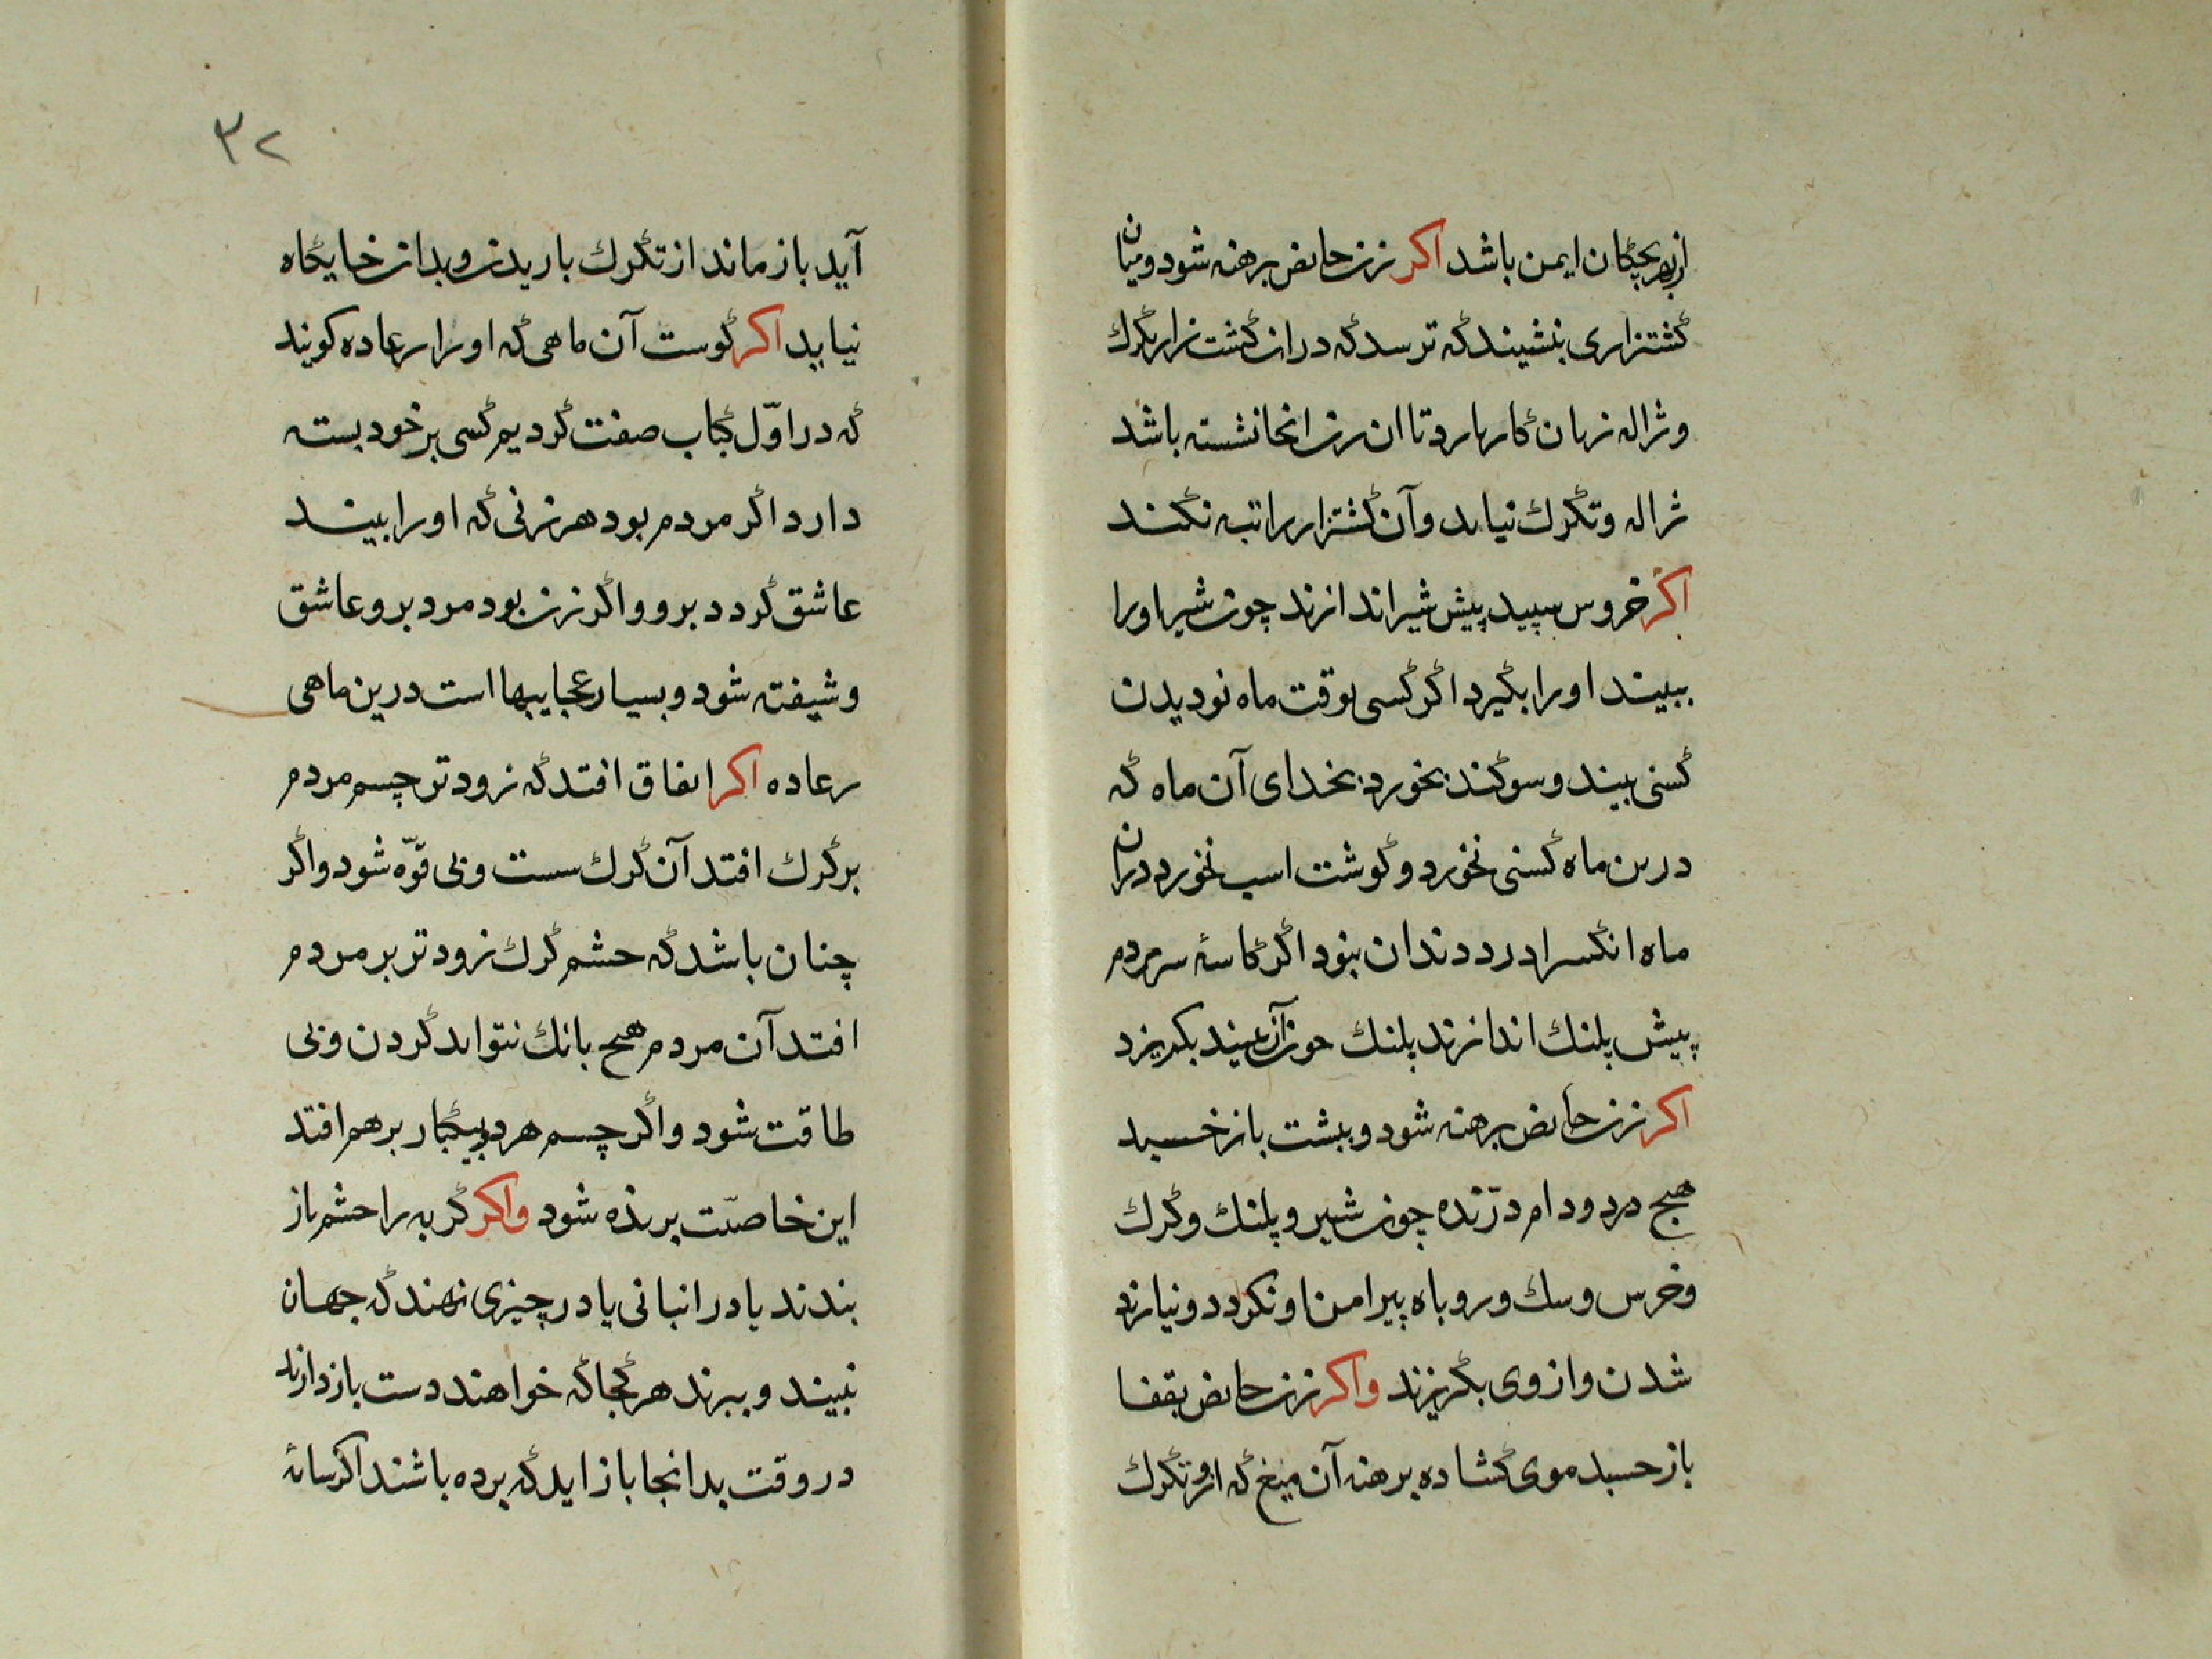 از بهر بچگان ایمن باشد اکر زن حایض برهنه شود و میان
کشتزاری بنشیند که ترسد که دران کشت زار تکرک
و ژاله زیان کار بارد تا ان زن انجا نشسته باشد
ژاله و تکرک نیاید و آن کشتزار را تبه نکند
اکر خروس سپید پیش شیر اندازند چون شیر اورا
ببیند اورا بکیرد اکر کسی بوقت ماه نو دیدن
کسنی بیند و سوکند بخورد بخدای آن ماه که
درین ماه کسنی نخورد و کوشت اسب نخورد دران
ماه انکس را درد دندان نبود اکر کاسۀ سر مردم
پیش پلنک اندازند پلنک چون آن ببیند بکریزد
اکر زن حایض برهنه شود و بپشت باز خسبد
هیچ دد و دام درّنده چون شیر و پلنک و کرک
و خرس و سک و روباه پیرامن او نکردد و نیارند
شدن و از وی بکریزند واکر زن حایض بقفا
باز خسبد موی کشاده برهنه آن میغ که ازو تکرک
٣٢
آید باز ماند از تکرک باریدن و بدان خایکاه
نیاید اکر کوست آن ماهی که اورا رعاده کویند
که در اوّل کتاب صفت کردیم کسی بر خود بسته
دارد اکر مردم بود هر زنی که اورا بیند
عاشق کردد برو و اکر زن بود مرد برو عاشق
و شیفته شود و بسیار عجایبها است درین ماهی
رعاده اکر اتفاق افتد که زودتر چسم مردم
بر کرک افتد آن کرک سست و بی قوّه شود و اکر
چنان باشد که حشم کرک زودتر بر مردم
افتد آن مردم هیج بانک نتواند کردن و بی
طاقت شود و اکر چسم هر دو بیکبار بر هم افتد
این خاصیّت بریده شود واکر کربه را حشم باز
بندند یا در انبانی یا در چیزی نهند که جهان
نبیند و ببرند هر کجا که خواهند دست باز دارند
در وقت بدانجا باز اید که برده باشند اکر سایۀ